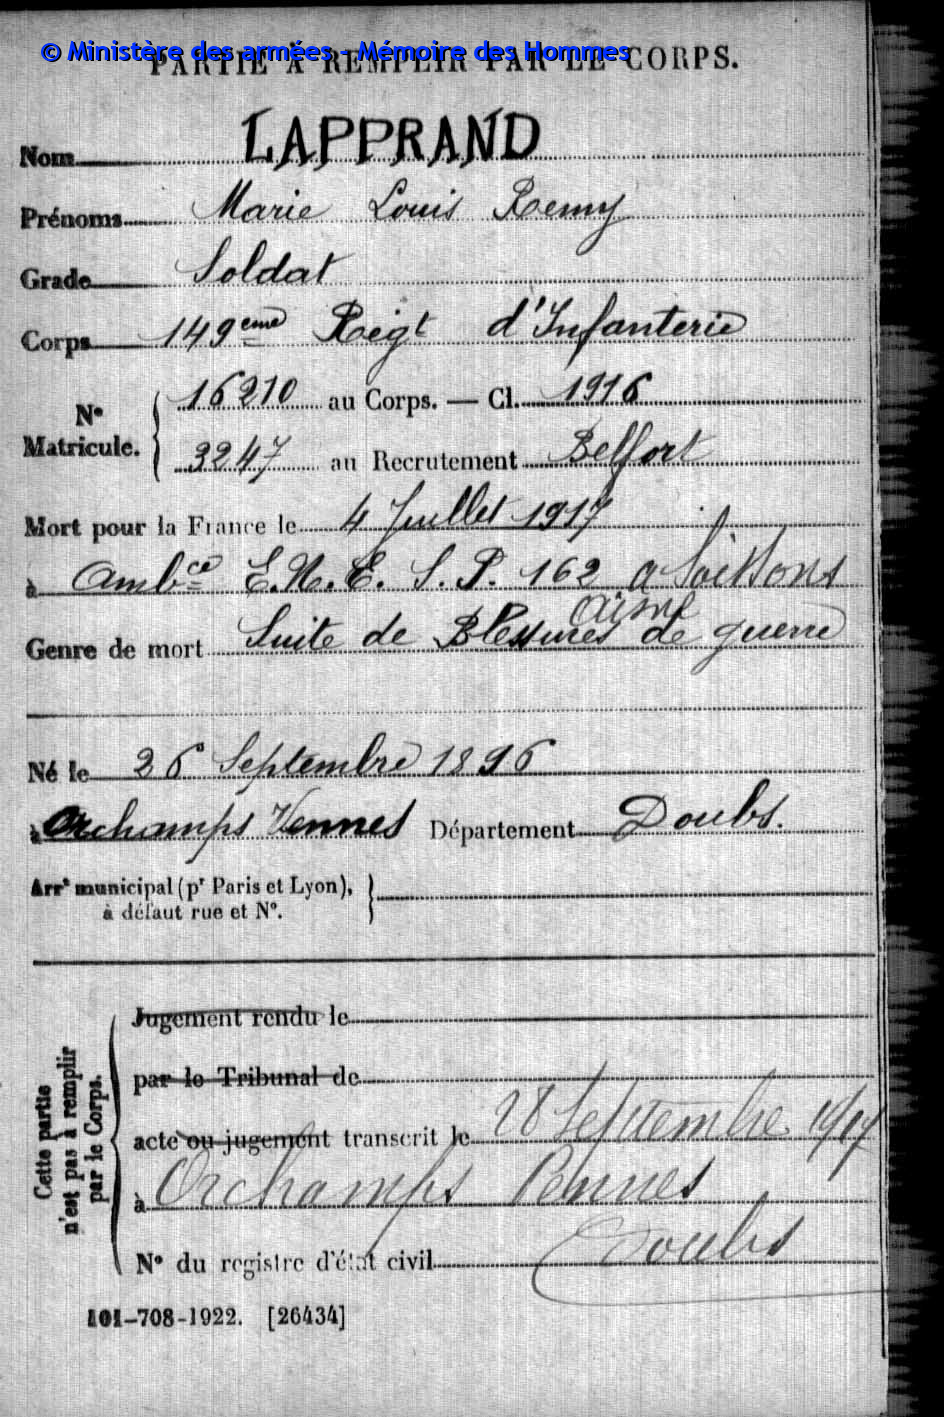 © Ministère des armées - Mémoire des Hommes
PARTIE À REMPLIR PAR LE CORPS.
Nom LAPPRAND
Prénoms Marie Louis Remy
Grade Soldat
Corps 149ème Régt d'Infanterie
N° Matricule. { 16210 au Corps. — Cl. 1916
3247 au Recrutement Belfort
Mort pour la France le 4 Juillet 1917
à Ambce E.N.E. S.P. 162 a Soissons
Aisne
Genre de mort Suite de Blessures de guerre
Né le 26 Septembre 1896
à Orchamps Vennes Département Doubs.
Arrt municipal (pr Paris et Lyon),
à défaut rue et N°.
Cette partie n'est pas à remplir par le Corps.
Jugement rendu le
par le Tribunal de
acte ou jugement transcrit le 28 Septembre 1917
à Orchamps Vennes
Doubs
N° du registre d'état civil
101-708-1922. [26434]